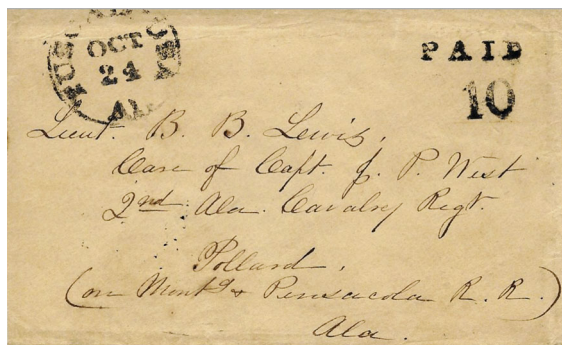 TUSCALOOSA
OCT
24
Ala
PAID
10
Lieut. B. B. Lewis,
Care of Capt. J. P. West
2nd Ala. Cavalry Regt.
Pollard,
(on Montg & Pensacola R. R.)
Ala.